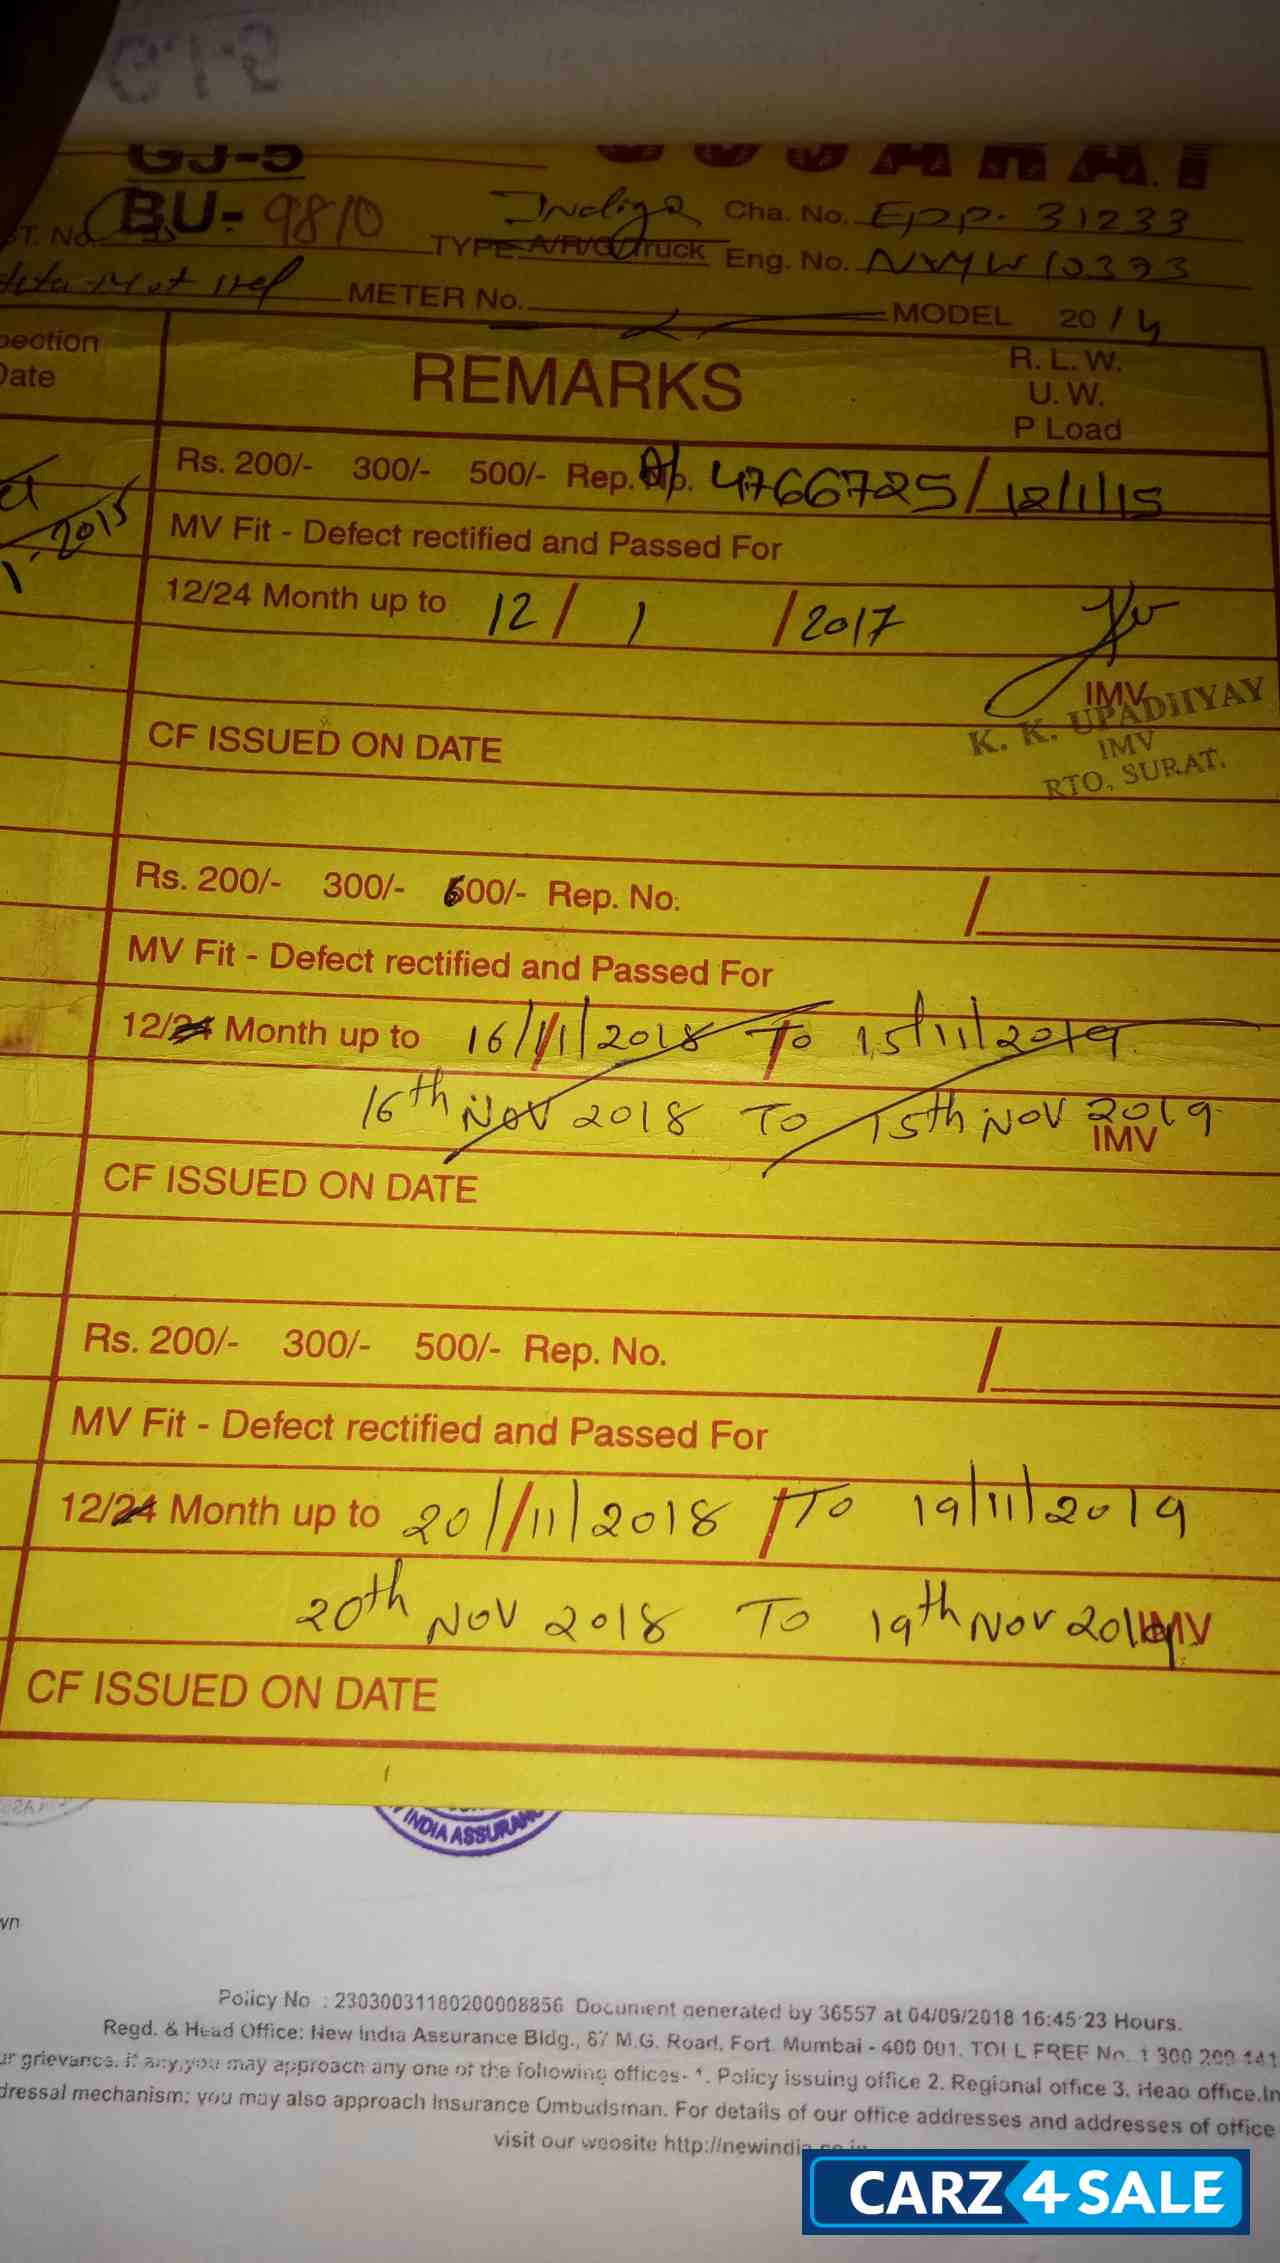 GJ-5 GUJARAT
BU- 9810 Indigo Cha. No. EPP. 31233
T. No. TYPE A/R/G/Truck Eng. No. NVYW10393
METER No. MODEL 2014
pection
Date
REMARKS
R. L. W.
U. W.
P Load
Rs. 200/- 300/- 500/- Rep. No. 4766725/ 12/1/15
2015
MV Fit - Defect rectified and Passed For
12/24 Month up to 12/ 1 /2017
IMV
K. K. UPADHYAY
IMV
RTO, SURAT.
CF ISSUED ON DATE
Rs. 200/- 300/- 600/- Rep. No. /
MV Fit - Defect rectified and Passed For
12/24 Month up to 16/11/2018 To 15/11/2019
16th NOV 2018 TO 15th NOV 2019
IMV
CF ISSUED ON DATE
Rs. 200/- 300/- 500/- Rep. No. /
MV Fit - Defect rectified and Passed For
12/24 Month up to 20/11/2018 To 19/11/2019
20th NOV 2018 TO 19th NOV 2019 IMV
CF ISSUED ON DATE
INDIA ASSURANC
wn
Policy No : 23030031180200008856 Document generated by 36557 at 04/09/2018 16:45:23 Hours.
Regd. & Head Office: New India Assurance Bldg., 87 M.G. Road, Fort, Mumbai - 400 001. TOLL FREE No. 1 800 209 141
ur grievance, if any,you may approach any one of the following offices- 1. Policy issuing office 2. Regional office 3. Head office.In
dressal mechanism; you may also approach Insurance Ombudsman. For details of our office addresses and addresses of office
visit our website http://newindia.co.in
CARZ4SALE